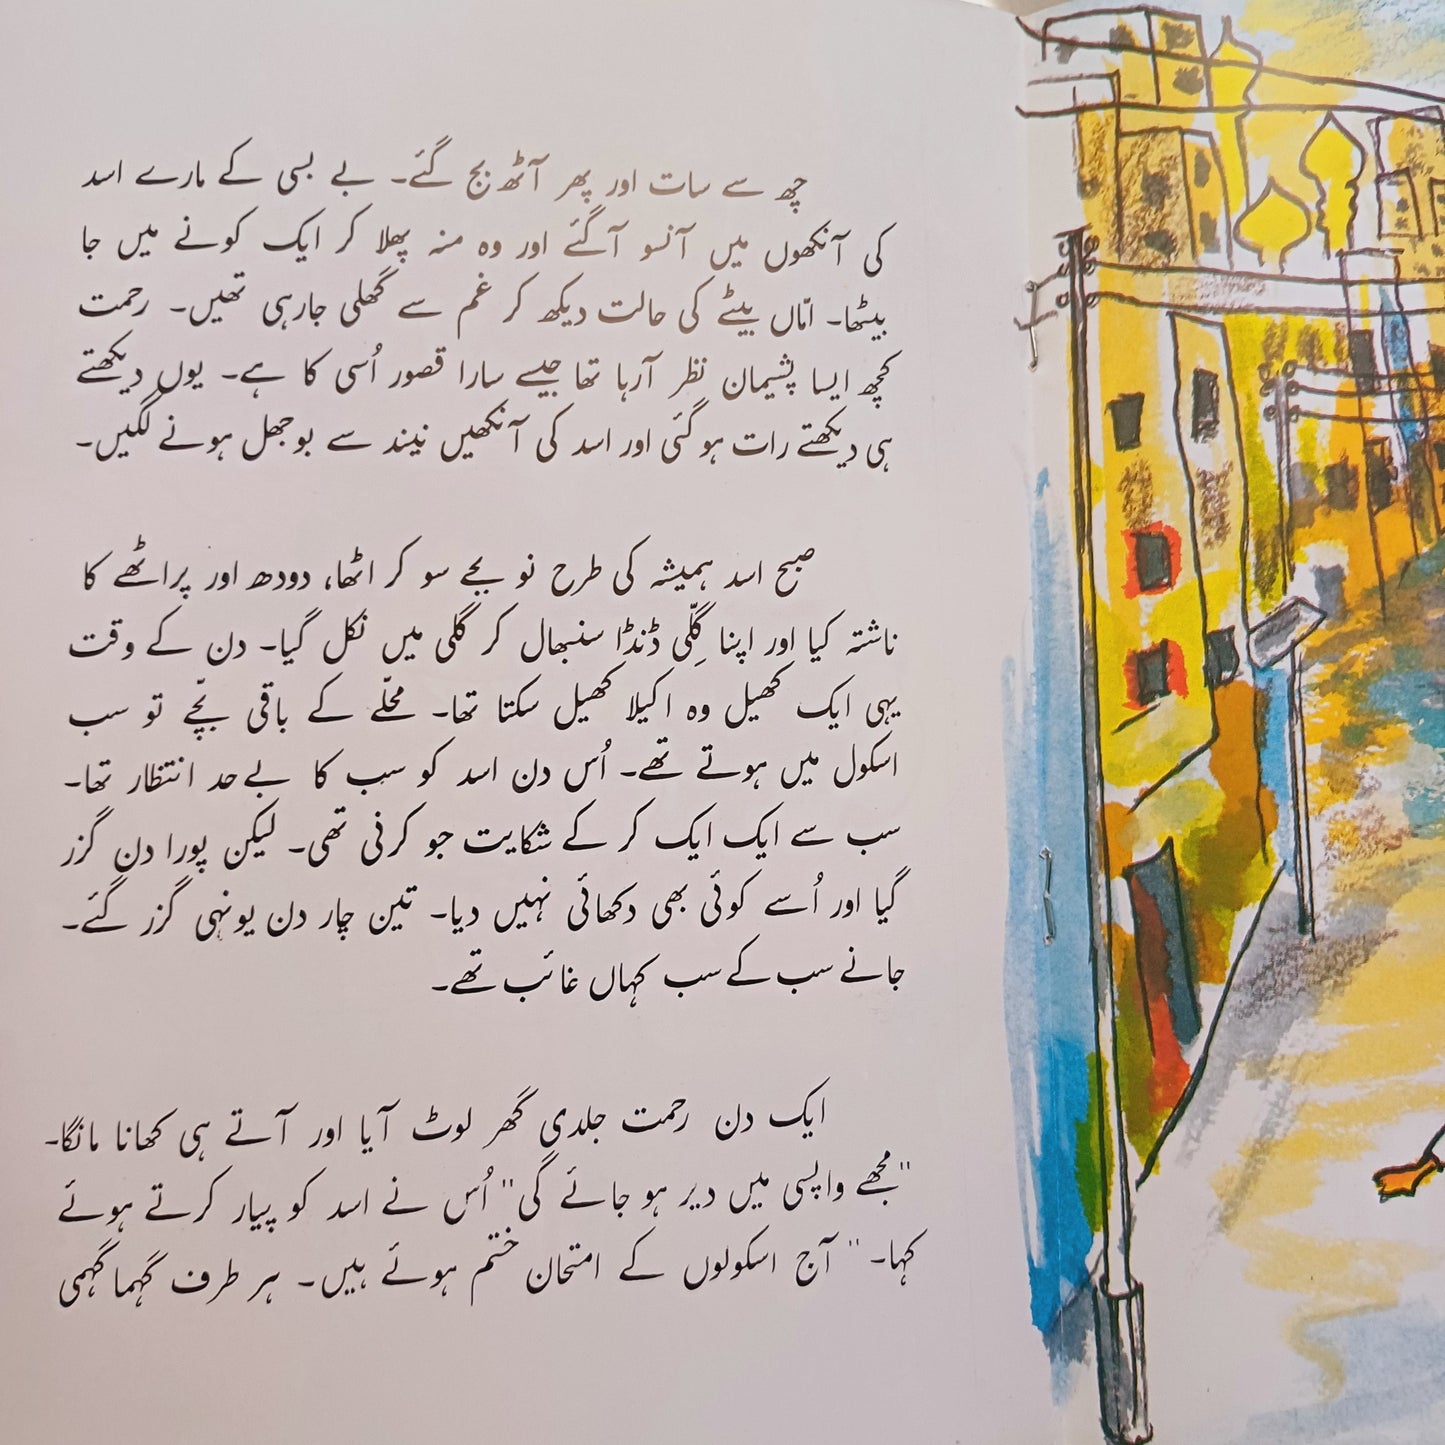 چھ سے سات اور پھر آٹھ بج گئے۔ بے بسی کے مارے اسد
کی آنکھوں میں آنسو آگئے اور وہ منہ پھلا کر ایک کونے میں جا
بیٹھا۔ امّاں بیٹے کی حالت دیکھ کر غم سے گھلی جارہی تھیں۔ رحمت
کچھ ایسا پشیمان نظر آرہا تھا جیسے سارا قصور اُسی کا ہے۔ یوں دیکھتے
ہی دیکھتے رات ہوگئی اور اسد کی آنکھیں نیند سے بوجھل ہونے لگیں۔
صبح اسد ہمیشہ کی طرح نو بجے سو کر اٹھا، دودھ اور پراٹھے کا
ناشتہ کیا اور اپنا گِلّی ڈنڈا سنبھال کر گلی میں نکل گیا۔ دن کے وقت
یہی ایک کھیل وہ اکیلا کھیل سکتا تھا۔ محلّے کے باقی بچّے تو سب
اسکول میں ہوتے تھے۔ اُس دن اسد کو سب کا بےحد انتظار تھا۔
سب سے ایک ایک کر کے شکایت جو کرنی تھی۔ لیکن پورا دن گزر
گیا اور اُسے کوئی بھی دکھائی نہیں دیا۔ تین چار دن یونہی گزر گئے۔
جانے سب کے سب کہاں غائب تھے۔
ایک دن رحمت جلدی گھر لوٹ آیا اور آتے ہی کھانا مانگا۔
"مجھے واپسی میں دیر ہو جائے گی" اُس نے اسد کو پیار کرتے ہوئے
کہا۔ "آج اسکولوں کے امتحان ختم ہوئے ہیں۔ ہر طرف گہما گہمی